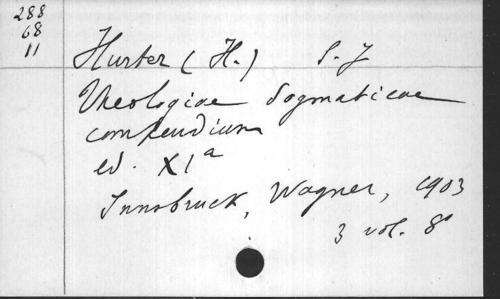 288
68
11
Hurter (H.) S. J
Theologiae dogmaticae
compendium
ed. XIa
Innsbruck, Wagner, 1903
3 vol. 8°